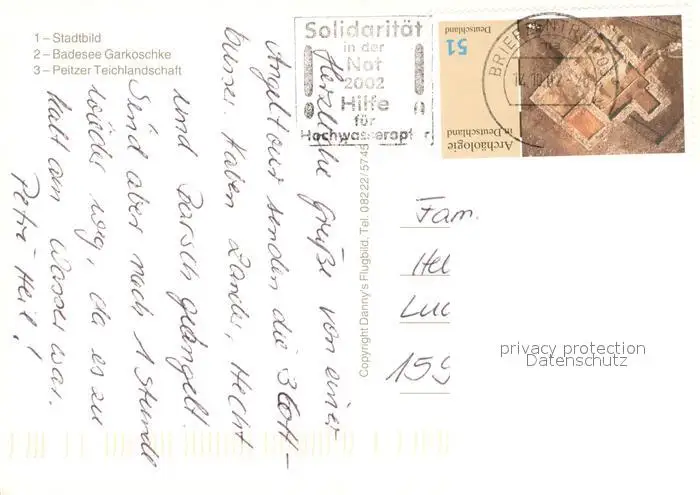 1 – Stadtbild
2 – Badesee Garkoschke
3 – Peitzer Teichlandschaft
Solidarität
in der
Not
2002
Hilfe
für
Hochwasseropfer
BRIEFZENTRUM
51
Deutschland
Archäologie
in Deutschland
Herzliche Grüße von einer
Angeltour senden die 3 Cott-
busser. Haben Zander, Hecht
und Barsch geangelt.
Sind aber nach 1 Stunde
wieder weg, da es zu
kalt am Wasser war.
Petri Heil!
Copyright Danny's Flugbild, Tel. 08222/5745
Fam.
Hel
Luc
159
privacy protection
Datenschutz